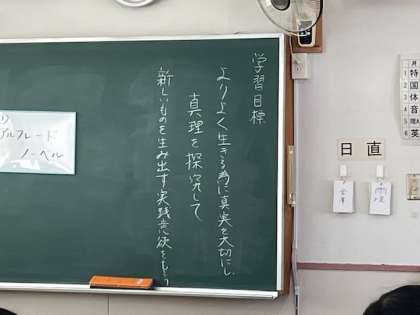 学習目標
よりよく生きる為に真実を大切にし、
真理を探究して
新しいものを生み出す実践意欲をもつ
アルフレード
ノーベル
日直
月
1 特
2 国
3 体
4 音
5 理
6 英